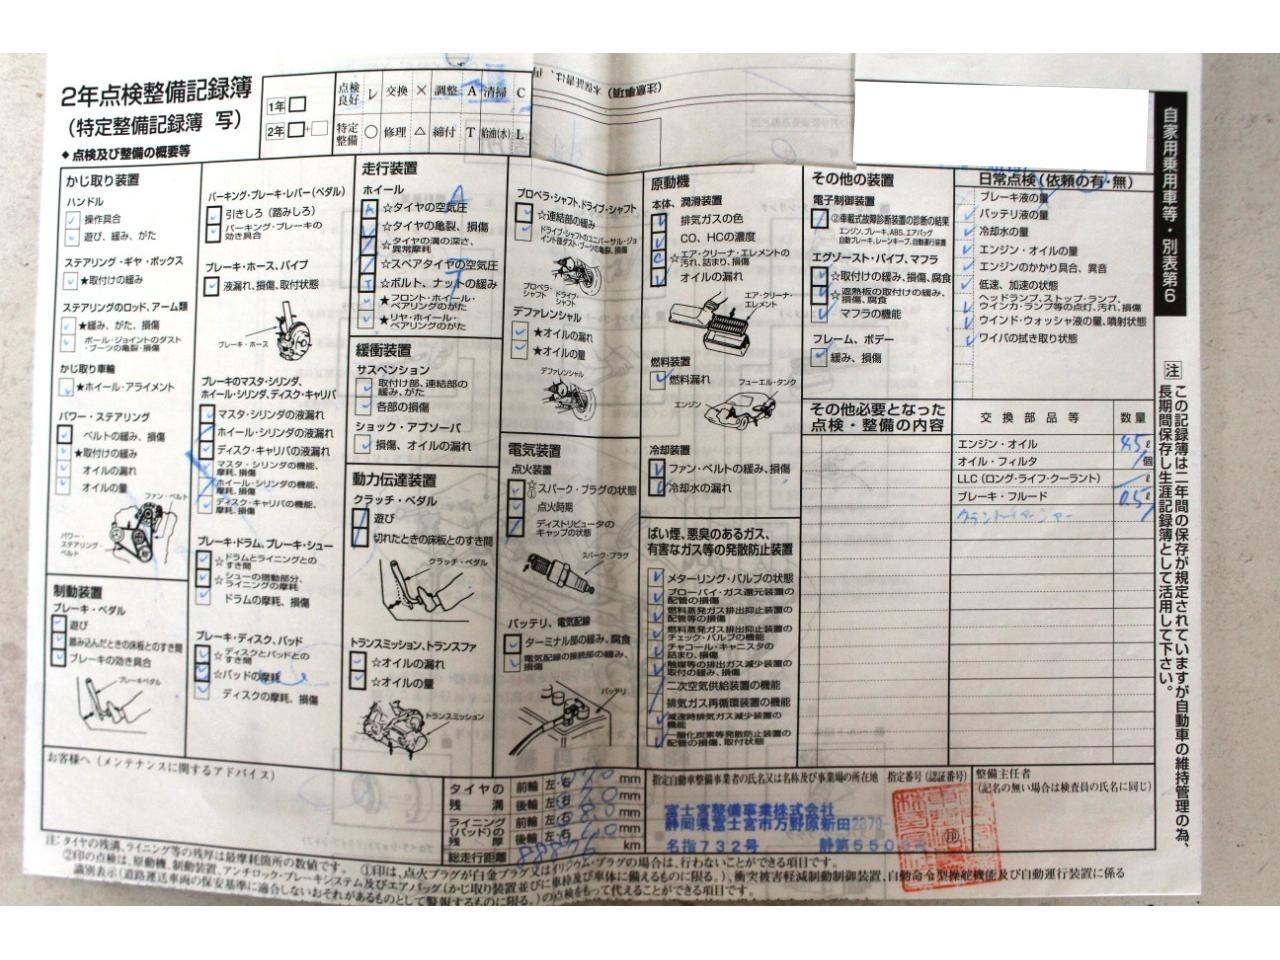 2年点検整備記録簿
(特定整備記録簿 写)
1年
2年
点検良好 レ 交換 × 調整 A 清掃 C
特定整備 ○ 修理 △ 締付 T 給油(水) L
(注意事項)
◆点検及び整備の概要等
かじ取り装置
ハンドル
操作具合
遊び、緩み、がた
ステアリング・ギヤ・ボックス
★取付けの緩み
ステアリングのロッド、アーム類
★緩み、がた、損傷
ボール・ジョイントのダスト・ブーツの亀裂・損傷
かじ取り車輪
★ホイール・アライメント
パワー・ステアリング
ベルトの緩み、損傷
★取付けの緩み
オイルの漏れ
オイルの量
ファン・ベルト
パワー・ステアリング・ベルト
制動装置
ブレーキ・ペダル
遊び
踏み込んだときの床板とのすき間
ブレーキの効き具合
ブレーキペダル
パーキング・ブレーキ・レバー(ペダル)
引きしろ(踏みしろ)
パーキング・ブレーキの効き具合
ブレーキ・ホース、パイプ
液漏れ、損傷、取付状態
ブレーキ・ホース
ブレーキのマスタ・シリンダ、
ホイール・シリンダ、ディスク・キャリパ
マスタ・シリンダの液漏れ
ホイール・シリンダの液漏れ
ディスク・キャリパの液漏れ
マスタ・シリンダの機能、摩耗、損傷
ホイール・シリンダの機能、摩耗、損傷
ディスク・キャリパの機能、摩耗、損傷
ブレーキ・ドラム、ブレーキ・シュー
☆ドラムとライニングとのすき間
☆シューの摺動部分、ライニングの摩耗
ドラムの摩耗、損傷
ブレーキ・ディスク、パッド
☆ディスクとパッドとのすき間
☆パッドの摩耗
ディスクの摩耗、損傷
走行装置
ホイール
A
☆タイヤの空気圧
☆タイヤの亀裂、損傷
☆タイヤの溝の深さ、異常摩耗
☆スペアタイヤの空気圧
☆ボルト、ナットの緩み
★フロント・ホイール・ベアリングのがた
★リヤ・ホイール・ベアリングのがた
緩衝装置
サスペンション
取付け部、連結部の緩み、がた
各部の損傷
ショック・アブソーバ
損傷、オイルの漏れ
動力伝達装置
クラッチ・ペダル
遊び
切れたときの床板とのすき間
クラッチ・ペダル
トランスミッション、トランスファ
☆オイルの漏れ
☆オイルの量
トランスミッション
プロペラ・シャフト、ドライブ・シャフト
☆連結部の緩み
ドライブ・シャフトのユニバーサル・ジョイント部ダスト・ブーツの亀裂、損傷
プロペラ・シャフト
ドライブ・シャフト
デファレンシャル
★オイルの漏れ
★オイルの量
デファレンシャル
電気装置
点火装置
☆スパーク・プラグの状態
点火時期
ディストリビュータのキャップの状態
スパーク・プラグ
バッテリ、電気配線
ターミナル部の緩み、腐食
電気配線の接続部の緩み、損傷
バッテリ
原動機
本体、潤滑装置
排気ガスの色
CO、HCの濃度
☆エア・クリーナ・エレメントの汚れ、詰まり、損傷
オイルの漏れ
エア・クリーナ・エレメント
燃料装置
燃料漏れ
フューエル・タンク
エンジン
冷却装置
ファン・ベルトの緩み、損傷
冷却水の漏れ
ばい煙、悪臭のあるガス、
有害なガス等の発散防止装置
メターリング・バルブの状態
ブローバイ・ガス還元装置の配管の損傷
燃料蒸発ガス排出抑止装置の配管等の損傷
燃料蒸発ガス排出抑止装置のチェック・バルブの機能
チャコール・キャニスタの詰まり、損傷
触媒等の排出ガス減少装置の取付の緩み、損傷
二次空気供給装置の機能
排気ガス再循環装置の機能
減速時排気ガス減少装置の機能
一酸化炭素等発散防止装置の配管の損傷、取付状態
その他の装置
電子制御装置
②車載式故障診断装置の診断の結果
エンジン、ブレーキ、ABS、エアバッグ
自動ブレーキ、レーンキープ、自動運行装置
エグゾースト・パイプ、マフラ
☆取付けの緩み、損傷、腐食
☆遮熱板の取付けの緩み、損傷、腐食
マフラの機能
フレーム、ボデー
緩み、損傷
その他必要となった
点検・整備の内容
日常点検(依頼の有・無)
ブレーキ液の量
バッテリ液の量
冷却水の量
エンジン・オイルの量
エンジンのかかり具合、異音
低速、加速の状態
ヘッドランプ、ストップ・ランプ、ウインカ・ランプ等の点灯、汚れ、損傷
ウインド・ウォッシャ液の量、噴射状態
ワイパの拭き取り状態
交換部品等 数量
エンジン・オイル 4.5ℓ
オイル・フィルタ 1個
LLC(ロング・ライフ・クーラント) ℓ
ブレーキ・フルード 0.5ℓ
自家用乗用車等・別表第6
注 この記録簿は二年間の保存が規定されていますが自動車の維持管理の為、
長期間保存し生涯記録簿として活用して下さい。
お客様へ(メンテナンスに関するアドバイス)
タイヤの残溝
前輪 左・右 mm
後輪 左・右 mm
ライニング(パッド)の残厚
前輪 左・右 mm
後輪 左・右 mm
総走行距離 km
指定自動車整備事業者の氏名又は名称及び事業場の所在地 指定番号(認証番号)
富士宮整備事業株式会社
静岡県富士宮市万野原新田
名指732号
整備主任者
(記名の無い場合は検査員の氏名に同じ)
印
注:タイヤの残溝、ライニング等の残厚は最摩耗箇所の数値です。 ①印は、点火プラグが白金プラグ又はイリジウム・プラグの場合は、行わないことができる項目です。
②印の点検は、原動機、制動装置、アンチロック・ブレーキシステム及びエアバッグ(かじ取り装置並びに車枠及び車体に備えるものに限る。)、衝突被害軽減制動制御装置、自動命令型操舵機能及び自動運行装置に係る
識別表示(道路運送車両の保安基準に適合しないおそれがあるものとして警報するものに限る。)の点検をもって代えることができる項目です。